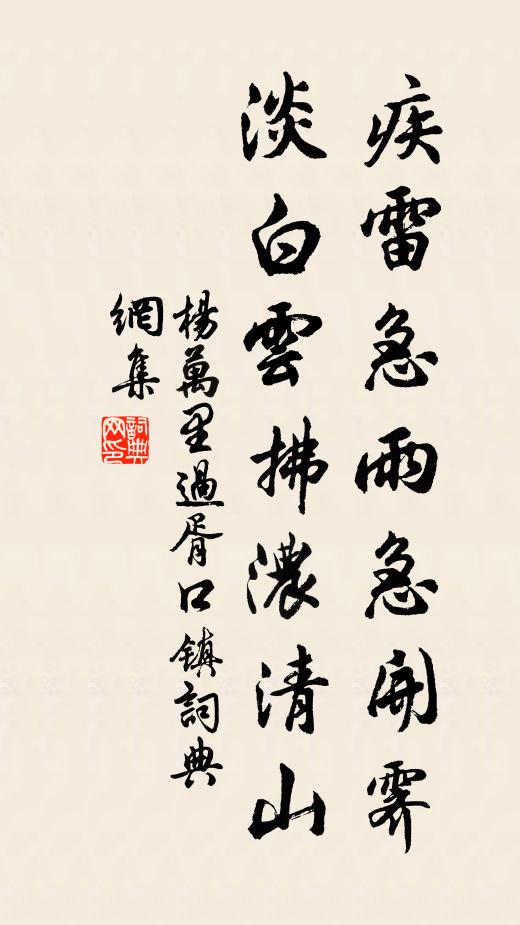 疾雷急雨急開霽
淡白雲拂濃清山
楊萬里過胥口鎮詞典
網集
詞典
网印